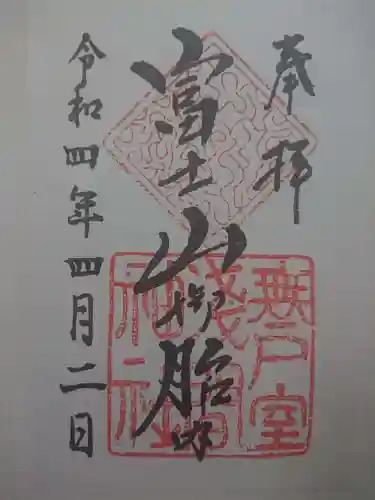 奉拝
富士山御胎内
無戸室浅間神社
令和四年四月二日